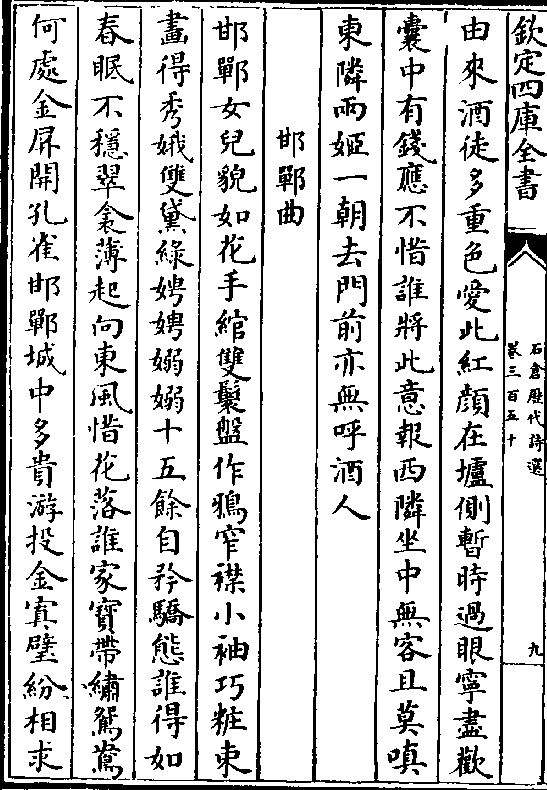 欽定四庫全書
石倉歷代詩選
卷三百五十
九
由來酒徒多重色愛此紅顏在壚側暫時過眼寧盡歡
囊中有錢應不惜誰將此意報西隣坐中無客且莫嗔
東隣兩姬一朝去門前亦無呼酒人
邯鄲曲
邯鄲女兒貌如花手綰雙鬟盤作鴉窄襟小袖巧粧束
畫得秀娥雙黛綠娉娉嫋嫋十五餘自矜驕態誰得如
春眠不穩翠衾薄起向東風惜花落誰家寶帶繡鴛鴦
何處金屏開孔雀邯鄲城中多貴游投金寘璧紛相求